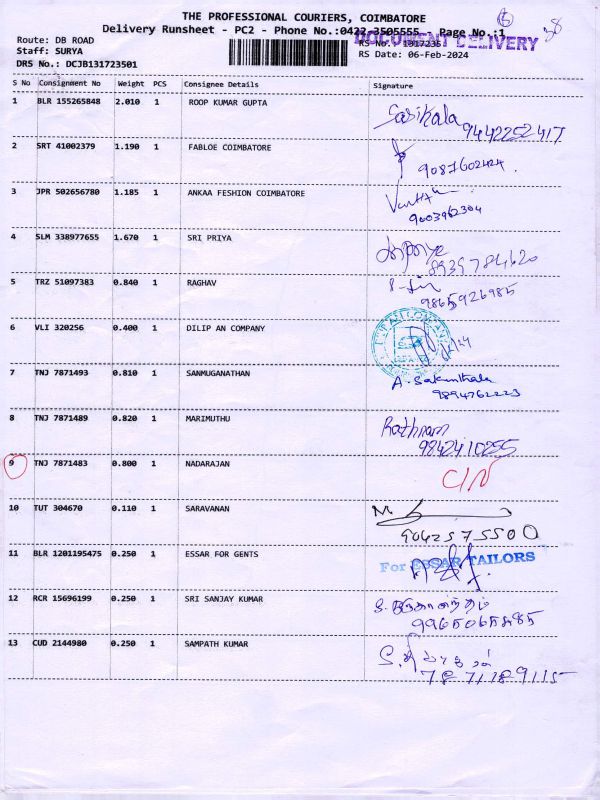 THE PROFESSIONAL COURIERS, COIMBATORE
Delivery Runsheet - PC2 - Phone No.:0422-3505555 Page No.:1
DOCUMENT DELIVERY
Route: DB ROAD RS No.: 1317235
Staff: SURYA RS Date: 06-Feb-2024
DRS No.: DCJB131723501
S No Consignment No Weight PCS Consignee Details Signature
1 BLR 155265848 2.010 1 ROOP KUMAR GUPTA Sasikala
9442252417
2 SRT 41002379 1.190 1 FABLOE COIMBATORE
9087602424.
3 JPR 502656780 1.185 1 ANKAA FESHION COIMBATORE
9003962304
4 SLM 338977655 1.670 1 SRI PRIYA
8939784620
5 TRZ 51097383 0.840 1 RAGHAV
9865926985
6 VLI 320256 0.400 1 DILIP AN COMPANY
7 TNJ 7871493 0.810 1 SANMUGANATHAN A. Sakunthala
9894762223
8 TNJ 7871489 0.820 1 MARIMUTHU Rathnam
9842410255
9 TNJ 7871483 0.800 1 NADARAJAN C/N
10 TUT 304670 0.110 1 SARAVANAN
9042575500
11 BLR 1201195475 0.250 1 ESSAR FOR GENTS For ESSAR TAILORS
12 RCR 15696199 0.250 1 SRI SANJAY KUMAR
13 CUD 2144980 0.250 1 SAMPATH KUMAR
7871189115